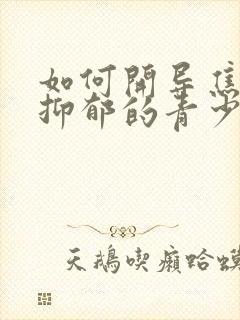 如何開导焦
抑郁的青少
天鵝喫癩蛤蟆